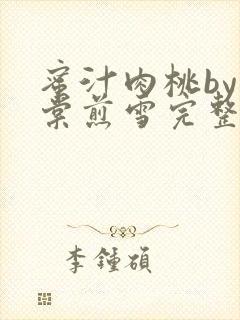 蜜汁肉桃by
棠煎雪完整
李锺硕